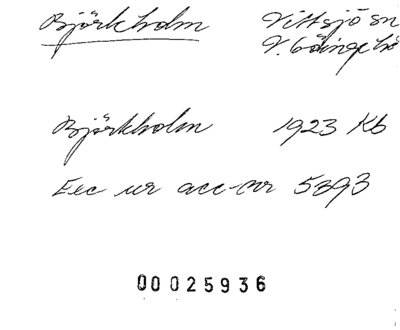 Björkholm Vittsjö sn
V. Göinge hd
Björkholm 1923 Kb
Exc ur acc-nr 5393
00025936